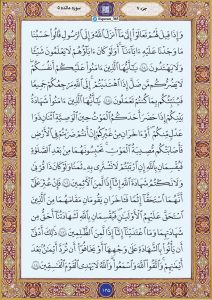 جزء ۷
سوره مائده ۵
وَإِذَا قِيلَ لَهُمْ تَعَالَوْا۟ إِلَىٰ مَآ أَنزَلَ ٱللَّهُ وَإِلَى ٱلرَّسُولِ قَالُوا۟ حَسْبُنَا
مَا وَجَدْنَا عَلَيْهِ ءَابَآءَنَآ أَوَلَوْ كَانَ ءَابَآؤُهُمْ لَا يَعْلَمُونَ شَيْـًٔا
وَلَا يَهْتَدُونَ ۝١٠٤ يَـٰٓأَيُّهَا ٱلَّذِينَ ءَامَنُوا۟ عَلَيْكُمْ أَنفُسَكُمْ
لَا يَضُرُّكُم مَّن ضَلَّ إِذَا ٱهْتَدَيْتُمْ إِلَى ٱللَّهِ مَرْجِعُكُمْ جَمِيعًا
فَيُنَبِّئُكُم بِمَا كُنتُمْ تَعْمَلُونَ ۝١٠٥ يَـٰٓأَيُّهَا ٱلَّذِينَ ءَامَنُوا۟ شَهَـٰدَةُ
بَيْنِكُمْ إِذَا حَضَرَ أَحَدَكُمُ ٱلْمَوْتُ حِينَ ٱلْوَصِيَّةِ ٱثْنَانِ ذَوَا
عَدْلٍ مِّنكُمْ أَوْ ءَاخَرَانِ مِنْ غَيْرِكُمْ إِنْ أَنتُمْ ضَرَبْتُمْ فِى ٱلْأَرْضِ
فَأَصَـٰبَتْكُم مُّصِيبَةُ ٱلْمَوْتِ تَحْبِسُونَهُمَا مِنۢ بَعْدِ ٱلصَّلَوٰةِ
فَيُقْسِمَانِ بِٱللَّهِ إِنِ ٱرْتَبْتُمْ لَا نَشْتَرِى بِهِۦ ثَمَنًا وَلَوْ كَانَ ذَا قُرْبَىٰ
وَلَا نَكْتُمُ شَهَـٰدَةَ ٱللَّهِ إِنَّآ إِذًا لَّمِنَ ٱلْـَٔاثِمِينَ ۝١٠٦ فَإِنْ عُثِرَ عَلَىٰٓ
أَنَّهُمَا ٱسْتَحَقَّآ إِثْمًا فَـَٔاخَرَانِ يَقُومَانِ مَقَامَهُمَا مِنَ ٱلَّذِينَ
ٱسْتَحَقَّ عَلَيْهِمُ ٱلْأَوْلَيَـٰنِ فَيُقْسِمَانِ بِٱللَّهِ لَشَهَـٰدَتُنَآ أَحَقُّ مِن
شَهَـٰدَتِهِمَا وَمَا ٱعْتَدَيْنَآ إِنَّآ إِذًا لَّمِنَ ٱلظَّـٰلِمِينَ ۝١٠٧ ذَٰلِكَ أَدْنَىٰٓ
أَن يَأْتُوا۟ بِٱلشَّهَـٰدَةِ عَلَىٰ وَجْهِهَآ أَوْ يَخَافُوٓا۟ أَن تُرَدَّ أَيْمَـٰنٌۢ بَعْدَ
أَيْمَـٰنِهِمْ وَٱتَّقُوا۟ ٱللَّهَ وَٱسْمَعُوا۟ وَٱللَّهُ لَا يَهْدِى ٱلْقَوْمَ ٱلْفَـٰسِقِينَ ۝١٠٨
١٢٥